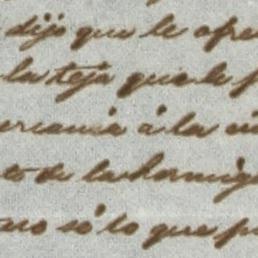 dijo que le ofre
la teja que le p
ercania á la ciu
to de la hormig
aro sólo que p